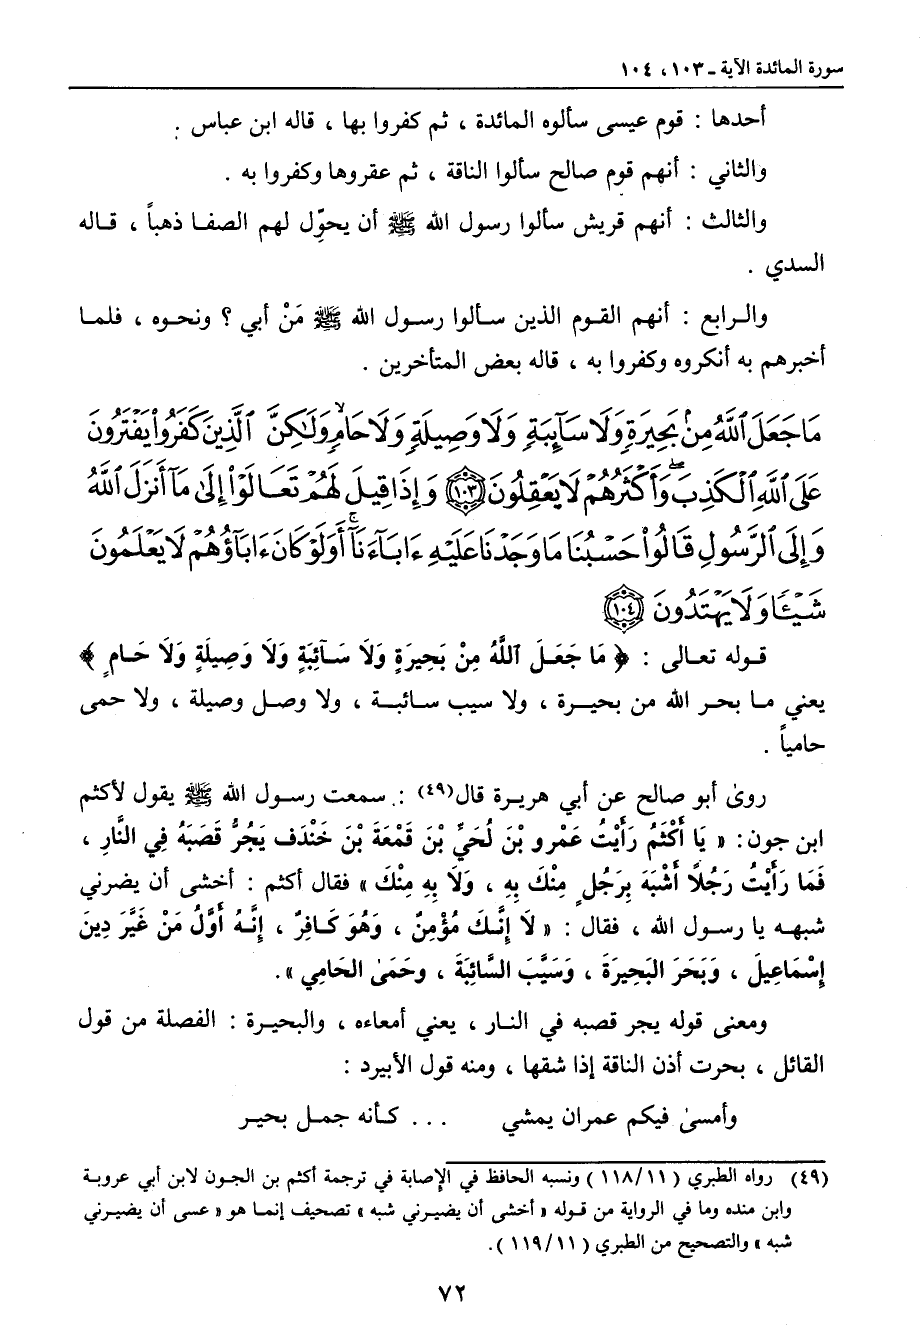 سورة المائدة الآية ـ ١٠٣ ، ١٠٤
أحدها : قوم عيسى سألوه المائدة ، ثم كفروا بها ، قاله ابن عباس .
والثاني : أنهم قوم صالح سألوا الناقة ، ثم عقروها وكفروا به .
والثالث : أنهم قريش سألوا رسول الله ﷺ أن يحوِّل لهم الصفا ذهباً ، قاله
السدي .
والرابع : أنهم القوم الذين سألوا رسول الله ﷺ مَنْ أبي ؟ ونحوه ، فلما
أخبرهم به أنكروه وكفروا به ، قاله بعض المتأخرين .
مَا جَعَلَ ٱللَّهُ مِنۢ بَحِيرَةٍ وَلَا سَآئِبَةٍ وَلَا وَصِيلَةٍ وَلَا حَامٍ ۙ وَلَٰكِنَّ ٱلَّذِينَ كَفَرُواْ يَفْتَرُونَ
عَلَى ٱللَّهِ ٱلْكَذِبَ ۖ وَأَكْثَرُهُمْ لَا يَعْقِلُونَ ﴿١٠٣﴾ وَإِذَا قِيلَ لَهُمْ تَعَالَوْاْ إِلَىٰ مَآ أَنزَلَ ٱللَّهُ
وَإِلَى ٱلرَّسُولِ قَالُواْ حَسْبُنَا مَا وَجَدْنَا عَلَيْهِ ءَابَآءَنَآ ۚ أَوَلَوْ كَانَ ءَابَآؤُهُمْ لَا يَعْلَمُونَ
شَيْـًٔا وَلَا يَهْتَدُونَ ﴿١٠٤﴾
قوله تعالى : ﴿ مَا جَعَـلَ ٱللَّهُ مِنْ بَحِيرَةٍ وَلَا سَـآئِبَةٍ وَلَا وَصِيلَةٍ وَلَا حَـامٍ ﴾
يعني ما بحر الله من بحيرة ، ولا سيب سائبة ، ولا وصل وصيلة ، ولا حمى
حامياً .
روىٰ أبو صالح عن أبي هريرة قال(٤٩) : سمعت رسول الله ﷺ يقول لأكثم
ابن جون : « يَا أَكْثَمُ رَأَيْتُ عَمْرو بْنَ لُحَيِّ بْنَ قَمْعَةَ بْنَ خَنْدَف يَجُرُّ قَصَبَهُ فِي النَّارِ ،
فَمَا رَأَيْتُ رَجُلاً أَشْبَهَ بِرَجُلٍ مِنْكَ بِهِ ، وَلَا بِهِ مِنْكَ » فقال أكثم : أخشى أن يضرني
شبهه يا رسول الله ، فقال : « لَا إِنَّكَ مُؤْمِنٌ ، وَهُوَ كَافِرٌ ، إِنَّهُ أَوَّلُ مَنْ غَيَّرَ دِينَ
إِسْمَاعِيلَ ، وَبَحَرَ البَحِيرَةَ ، وَسَيَّبَ السَّائِبَةَ ، وحَمَىٰ الحَامِي » .
ومعنى قوله يجر قصبه في النار ، يعني أمعاءه ، والبحيرة : الفصلة من قول
القائل ، بحرت أذن الناقة إذا شقها ، ومنه قول الأبيرد :
وأمسىٰ فيكم عمران يمشي ... كأنه جمل بحير
(٤٩) رواه الطبري ( ١١٨/١١ ) ونسبه الحافظ في الإصابة في ترجمة أكثم بن الجون لابن أبي عروبة
وابن منده وما في الرواية من قوله « أخشى أن يضيرني شبه » تصحيف إنما هو « عسى أن يضيرني
شبه » والتصحيح من الطبري ( ١١٩/١١ ) .
٧٢